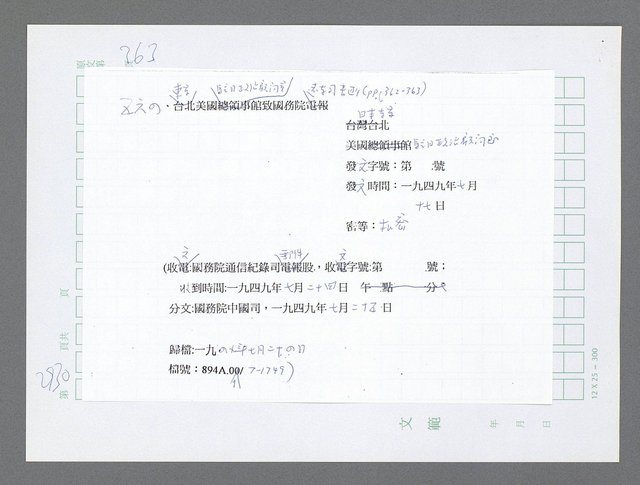 363
五六〇、台北美國總領事館致國務院電報
東京 駐日政治顧問
(pp.362-363)
日本東京
台灣台北
美國總領事館 駐日政治顧問
發文字號：第 號
發文時間：一九四九年七月
十七日
密等：機密
(收電:國務院通信紀錄司電報股，收電字號:第 號；
收到時間:一九四九年七月二十四日 午 點 分
分文:國務院中國司，一九四九年七月二十五日
歸檔:一九四九年七月二十四日
檔號：894A.00/7-1749)
頁
頁共
第 2930
12 X 25 = 300
文 範 年 月 日